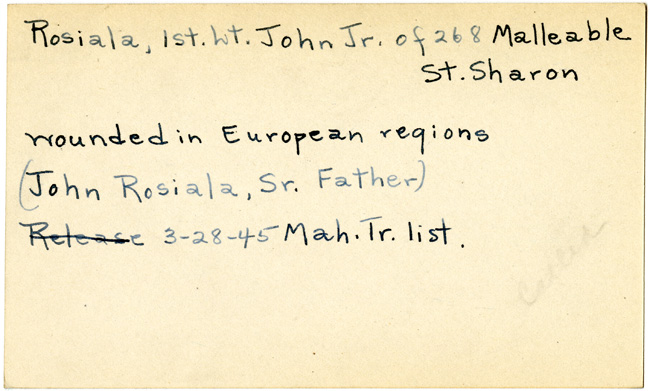 Rosiala, 1st. Lt. John Jr. of 268 Malleable
St. Sharon
wounded in European regions
(John Rosiala, Sr. Father)
Release 3-28-45 Mah. Tr. list.
Called